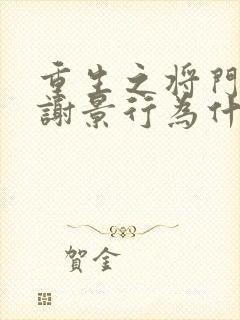 重生之将門
謝景行為什
賀金